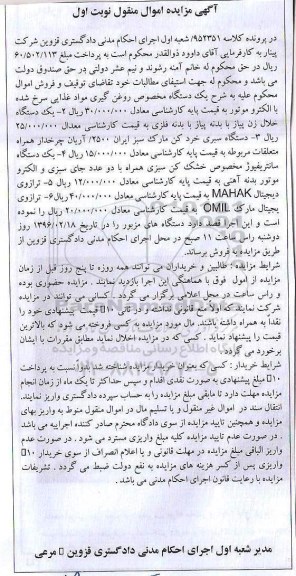 آگهی مزایده اموال منقول نوبت اول
در پرونده کلاسه ۹۵۲۳۵۱/ شعبه اول اجرای احکام مدنی دادگستری قزوین شرکت
پیتار به کارفرمایی آقای داوود ذوالقدر محکوم است به پرداخت مبلغ ۶۰/۵۰۲/۱۱۳
ریال در حق محکوم له خانم آمنه رشوند و نیم عشر دولتی در حق صندوق دولت
می باشد و محکوم له جهت استیفای مطالبات خود تقاضای توقیف و فروش اموال
محکوم علیه به شرح یک دستگاه مخصوص روغن گیری مواد غذایی سرخ شده
با الکترو موتور به قیمت پایه کارشناسی معادل ۳۰/۰۰۰/۰۰۰ ریال ۲- یک دستگاه
خلال زن پیاز با بدنه پیاز با بدنه فلزی به قیمت کارشناسی معدال ۲۵/۰۰۰/۰۰۰
ریال ۳- دستگاه سبزی خرد کن مارک سبز ایران ۲۵۰۰/ آریان چرخدار همراه
متعلقات مربوطه به قیمت پایه کارشناسی معادل ۱۵/۰۰۰/۰۰۰ ریال ۴- یک دستگاه
سانتریفیوژ مخصوص خشک کن سبزی همراه با دو عدد جای سبزی و الکترو
موتور بدنه آهنی به قیمت پایه کارشناسی معادل ۱۲/۰۰۰/۰۰۰ ریال ۵- ترازوی
دیجیتال MAHAK به قیمت پایه کارشناسی معادل ۴۰/۰۰۰/۰۰۰ ریال ۶- ترازوی
یجیتال مارک OMIL به قیمت کارشناسی معادل ۲۰/۰۰۰/۰۰۰ ریال را نموده
است و این اجرا قصد دارد دستگاه های مزبور را در تاریخ ۱۳۹۶/۰۲/۱۸ روز
دوشنبه راس ساعت ۱۱ صبح در محل اجرای احکام مدنی دادگستری قزوین از
طریق مزایده به فروش برساند.
شرایط مزایده : طالبین و خریداران می توانند همه روزه تا پنج روز قبل از زمان
مزایده از اموال فوق با هماهنگی این اجرا بازدید نمایند . مزایده حضوری بوده
و راس ساعت در محل اعلامی برگزار می گردد . کسانی می توانند در مزایده
شرکت نمایند که اولا منع قانونی نداشته و ثانیا ۱۰ قیمت پیشنهادی خود را
نقداً به همراه داشته باشند. مال مورد مزایده به کسی فروخته می شود که بالاترین
قیمت را پیشنهاد نماید . کسی که در مزایده اخلال نماید مطابق مقررات با ایشان
برخورد می گردد.
شرایط خریدار : کسی که بعنوان خریدار مزایده شناخته شد بدواً نسبت به پرداخت
۱۰ مبلغ پیشنهادی به صورت نقدی اقدام و سپس حداکثر تا یک ماه از زمان انجام
مزایده مهلت دارد تا مابقی مبلغ مزایده را به حساب سپرده دادگستری واریز نمایند.
انتقال سند در اموال غیر منقول و یا تسلیم مال در اموال منقول منوط به واریز بهای
مزایده و همچنین تایید مزایده از سوی دادگاه محترم صادر کننده اجراییه می باشد
. در صورت عدم تایید مزایده کلیه مبلغ واریزی مسترد می شود . در صورت عدم
واریز الباقی مبلغ مزایده در مهلت قانونی و یا اعلام انصراف از سوی خریدار ۱۰
واریزی پس از کسر هزینه های مزایده به نفع دولت ضبط می گردد . تشریفات
مزایده با رعایت قانون اجرای احکام مدنی می باشد .
مدیر شعبه اول اجرای احکام مدنی دادگستری قزوین مرعی